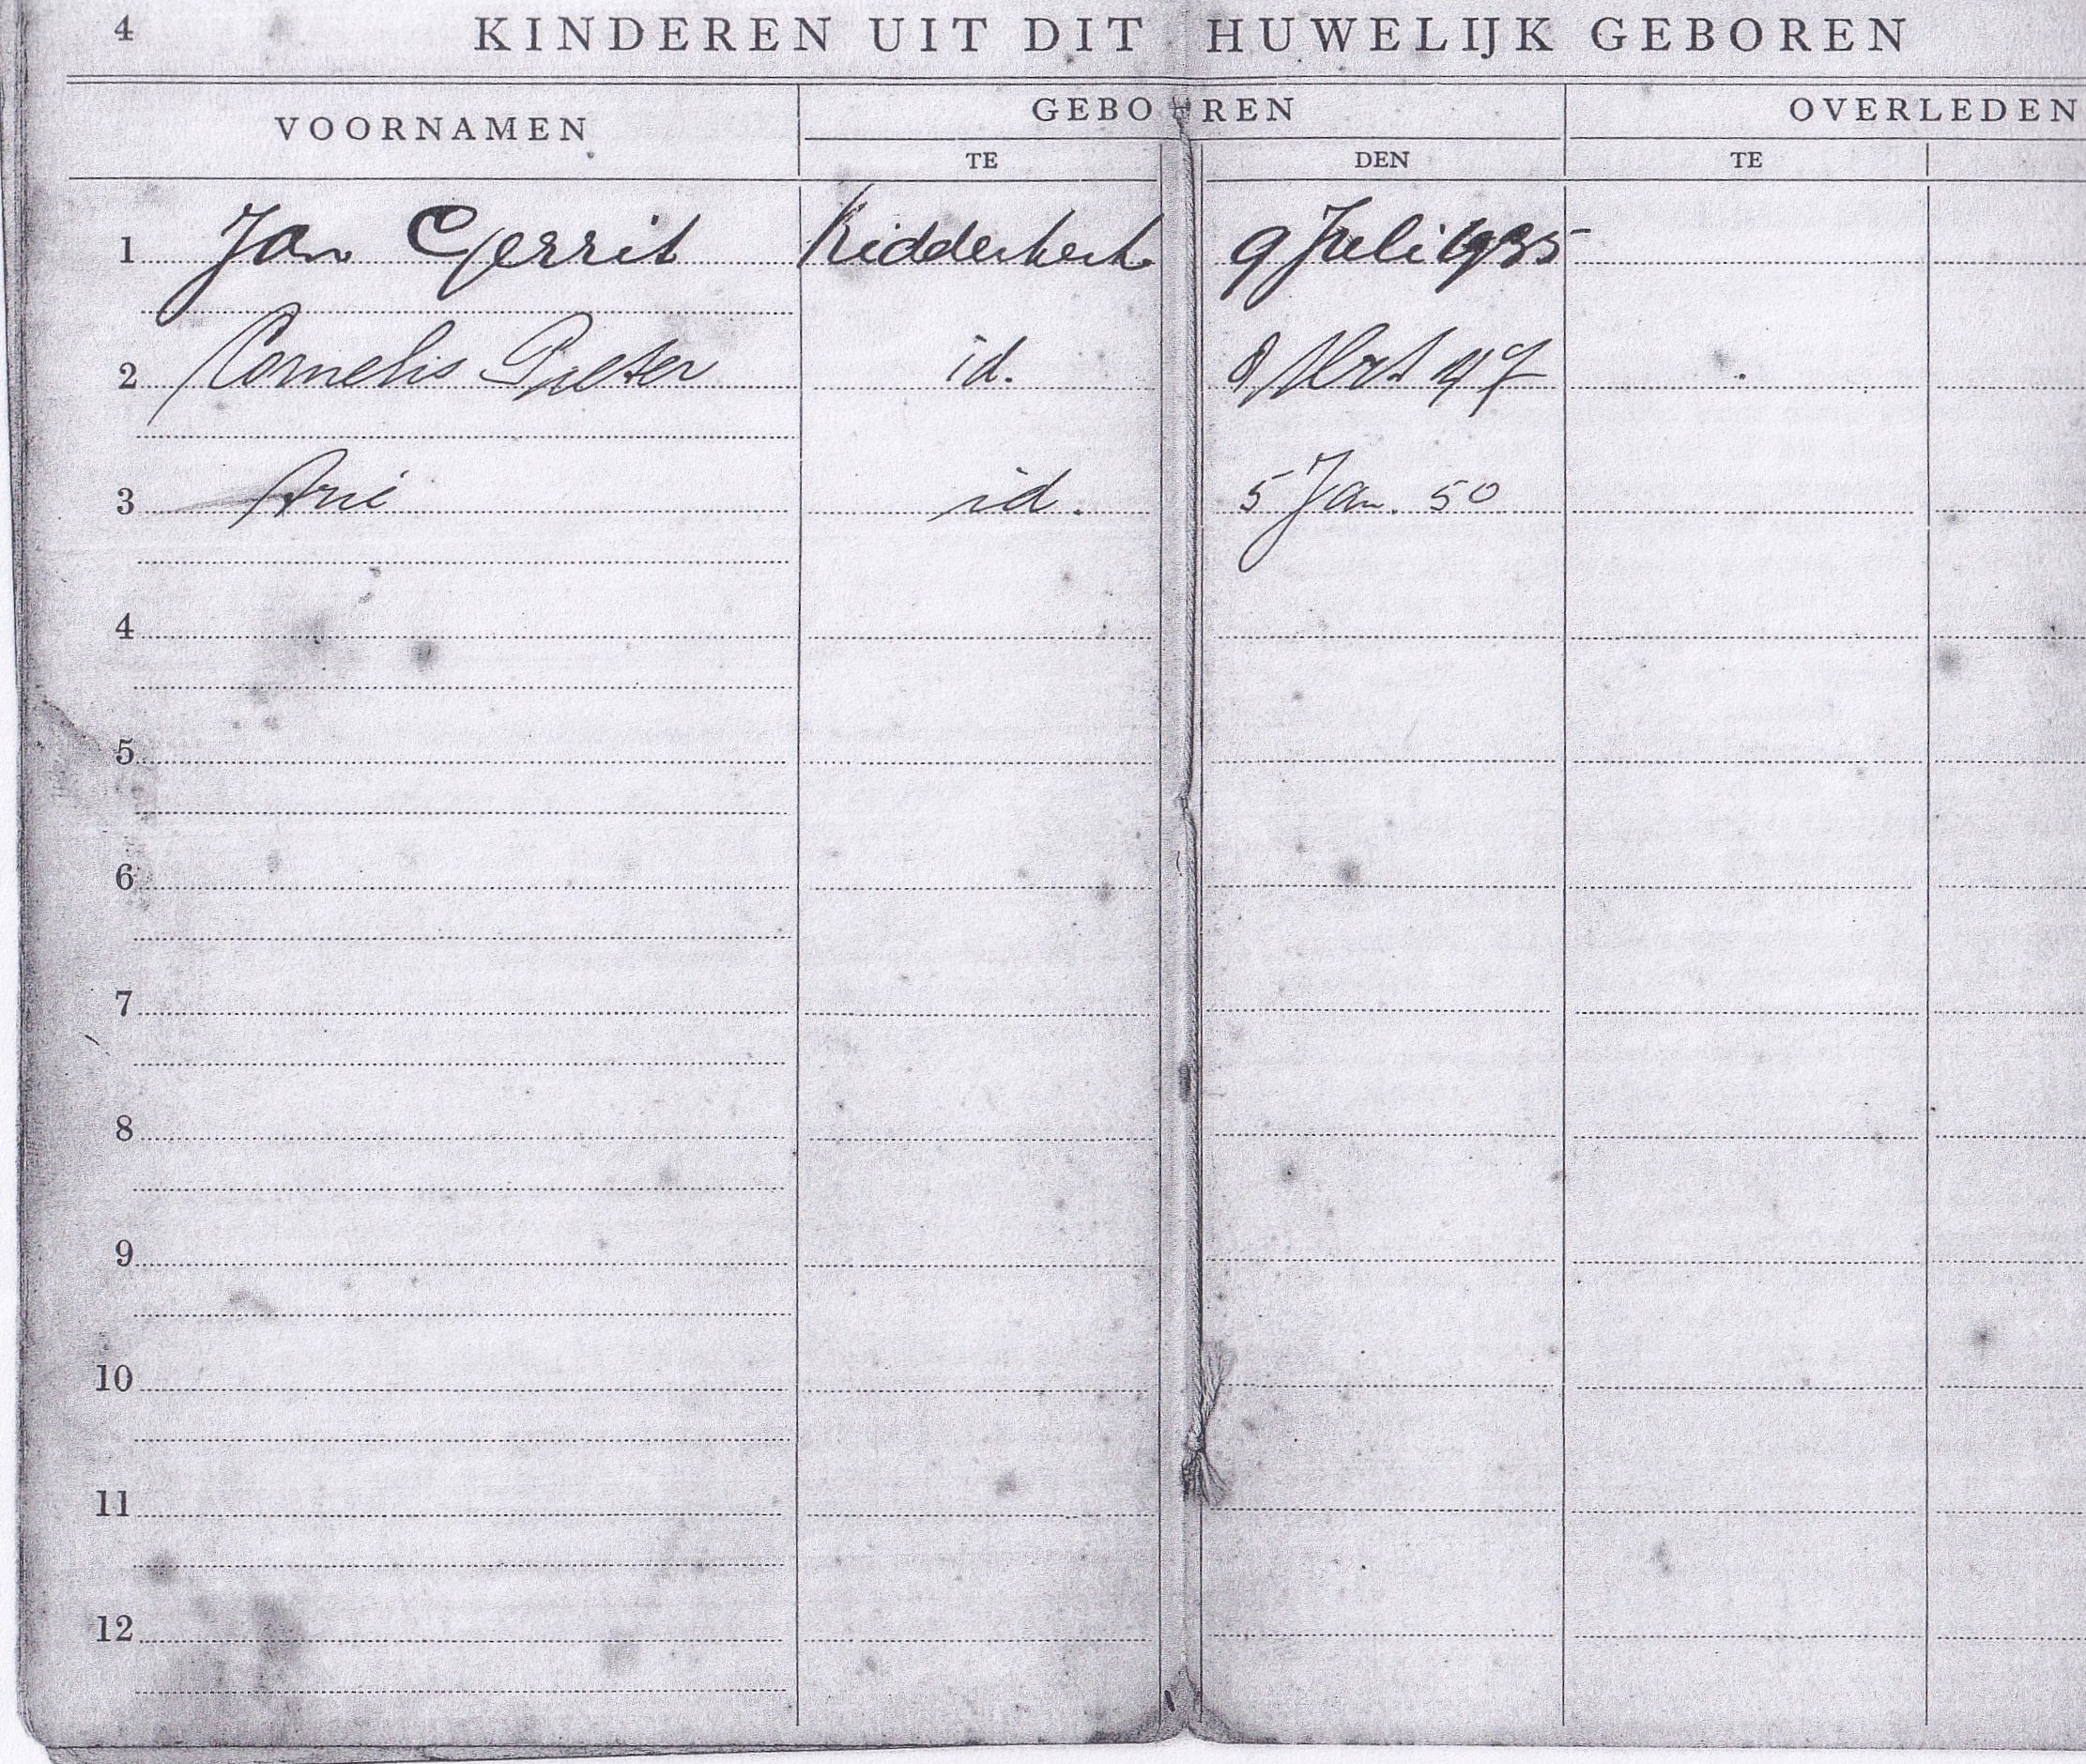 4 KINDEREN UIT DIT HUWELIJK GEBOREN
VOORNAMEN GEBOREN OVERLEDEN
TE DEN TE
1 Jan Gerrit Ridderkerk 9 Juli 1935
2 Cornelis Pieter id. 8 Mrt 47
3 Arie id. 5 Jan. 50
4
5
6
7
8
9
10
11
12